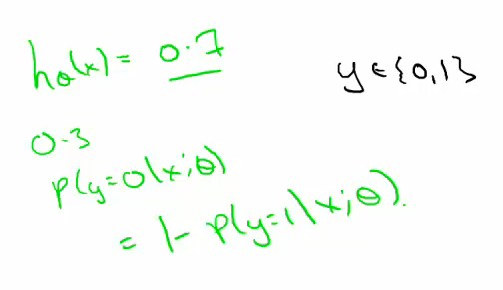 hθ(x) = 0.7
y ∈ {0,1}
0.3
P(y=0|x;θ)
= 1- P(y=1|x;θ).